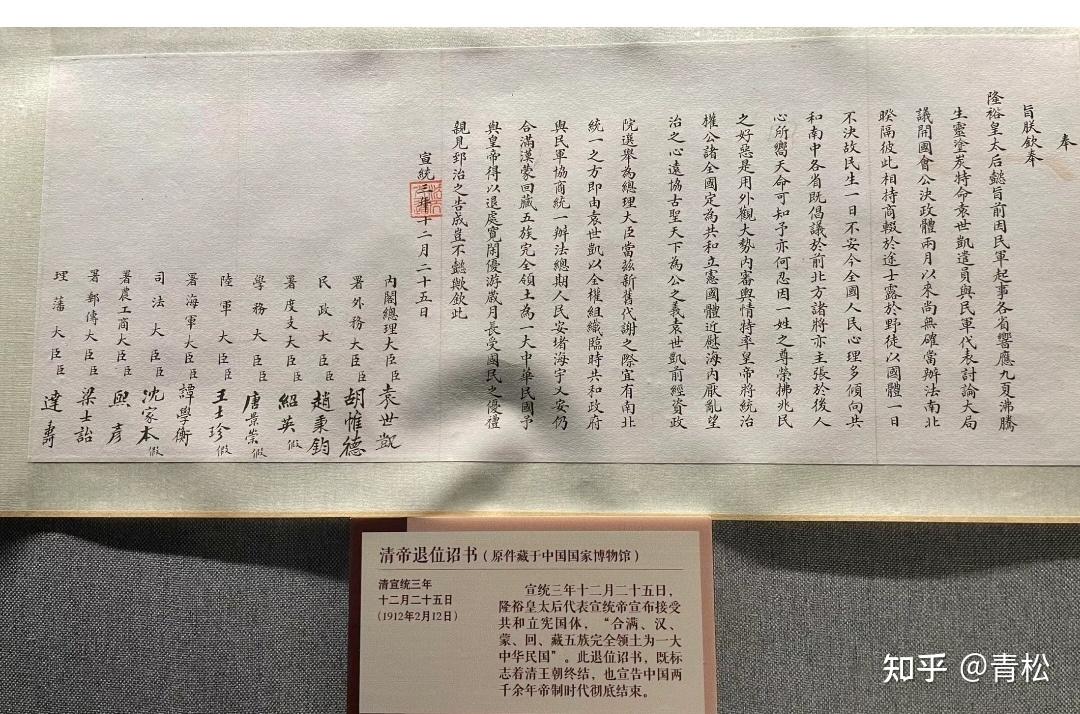 奉
旨朕欽奉
隆裕皇太后懿旨前因民軍起事各省響應九夏沸騰
生靈塗炭特命袁世凱遣員與民軍代表討論大局
議開國會公決政體兩月以來尚無確當辦法南北
睽隔彼此相持商輟於途士露於野徒以國體一日
不決故民生一日不安今全國人民心理多傾向共
和南中各省既倡議於前北方諸將亦主張於後人
心所嚮天命可知予亦何忍因一姓之尊榮拂兆民
之好惡是用外觀大勢內審輿情特率皇帝將統治
權公諸全國定為共和立憲國體近慰海內厭亂望
治之心遠協古聖天下為公之義袁世凱前經資政
院選舉為總理大臣當茲新舊代謝之際宜有南北
統一之方即由袁世凱以全權組織臨時共和政府
與民軍協商統一辦法總期人民安堵海宇乂安仍
合滿漢蒙回藏五族完全領土為一大中華民國予
與皇帝得以退處寬閑優游歲月長受國民之優禮
親見郅治之告成豈不懿歟欽此
宣統三年十二月二十五日
內閣總理大臣臣袁世凱
署外務大臣臣胡惟德
民政大臣臣趙秉鈞
署度支大臣臣紹英假
學務大臣臣唐景崇假
陸軍大臣臣王士珍假
署海軍大臣臣譚學衡
司法大臣臣沈家本假
署農工商大臣臣熙彥
署郵傳大臣臣梁士詒
理藩大臣臣達壽
清帝退位诏书（原件藏于中国国家博物馆）
清宣统三年
十二月二十五日
（1912年2月12日）
宣统三年十二月二十五日，
隆裕皇太后代表宣统帝宣布接受
共和立宪国体，“合满、汉、
蒙、回、藏五族完全领土为一大
中华民国”。此退位诏书，既标
志着清王朝终结，也宣告中国两
千余年帝制时代彻底结束。
知乎 @青松